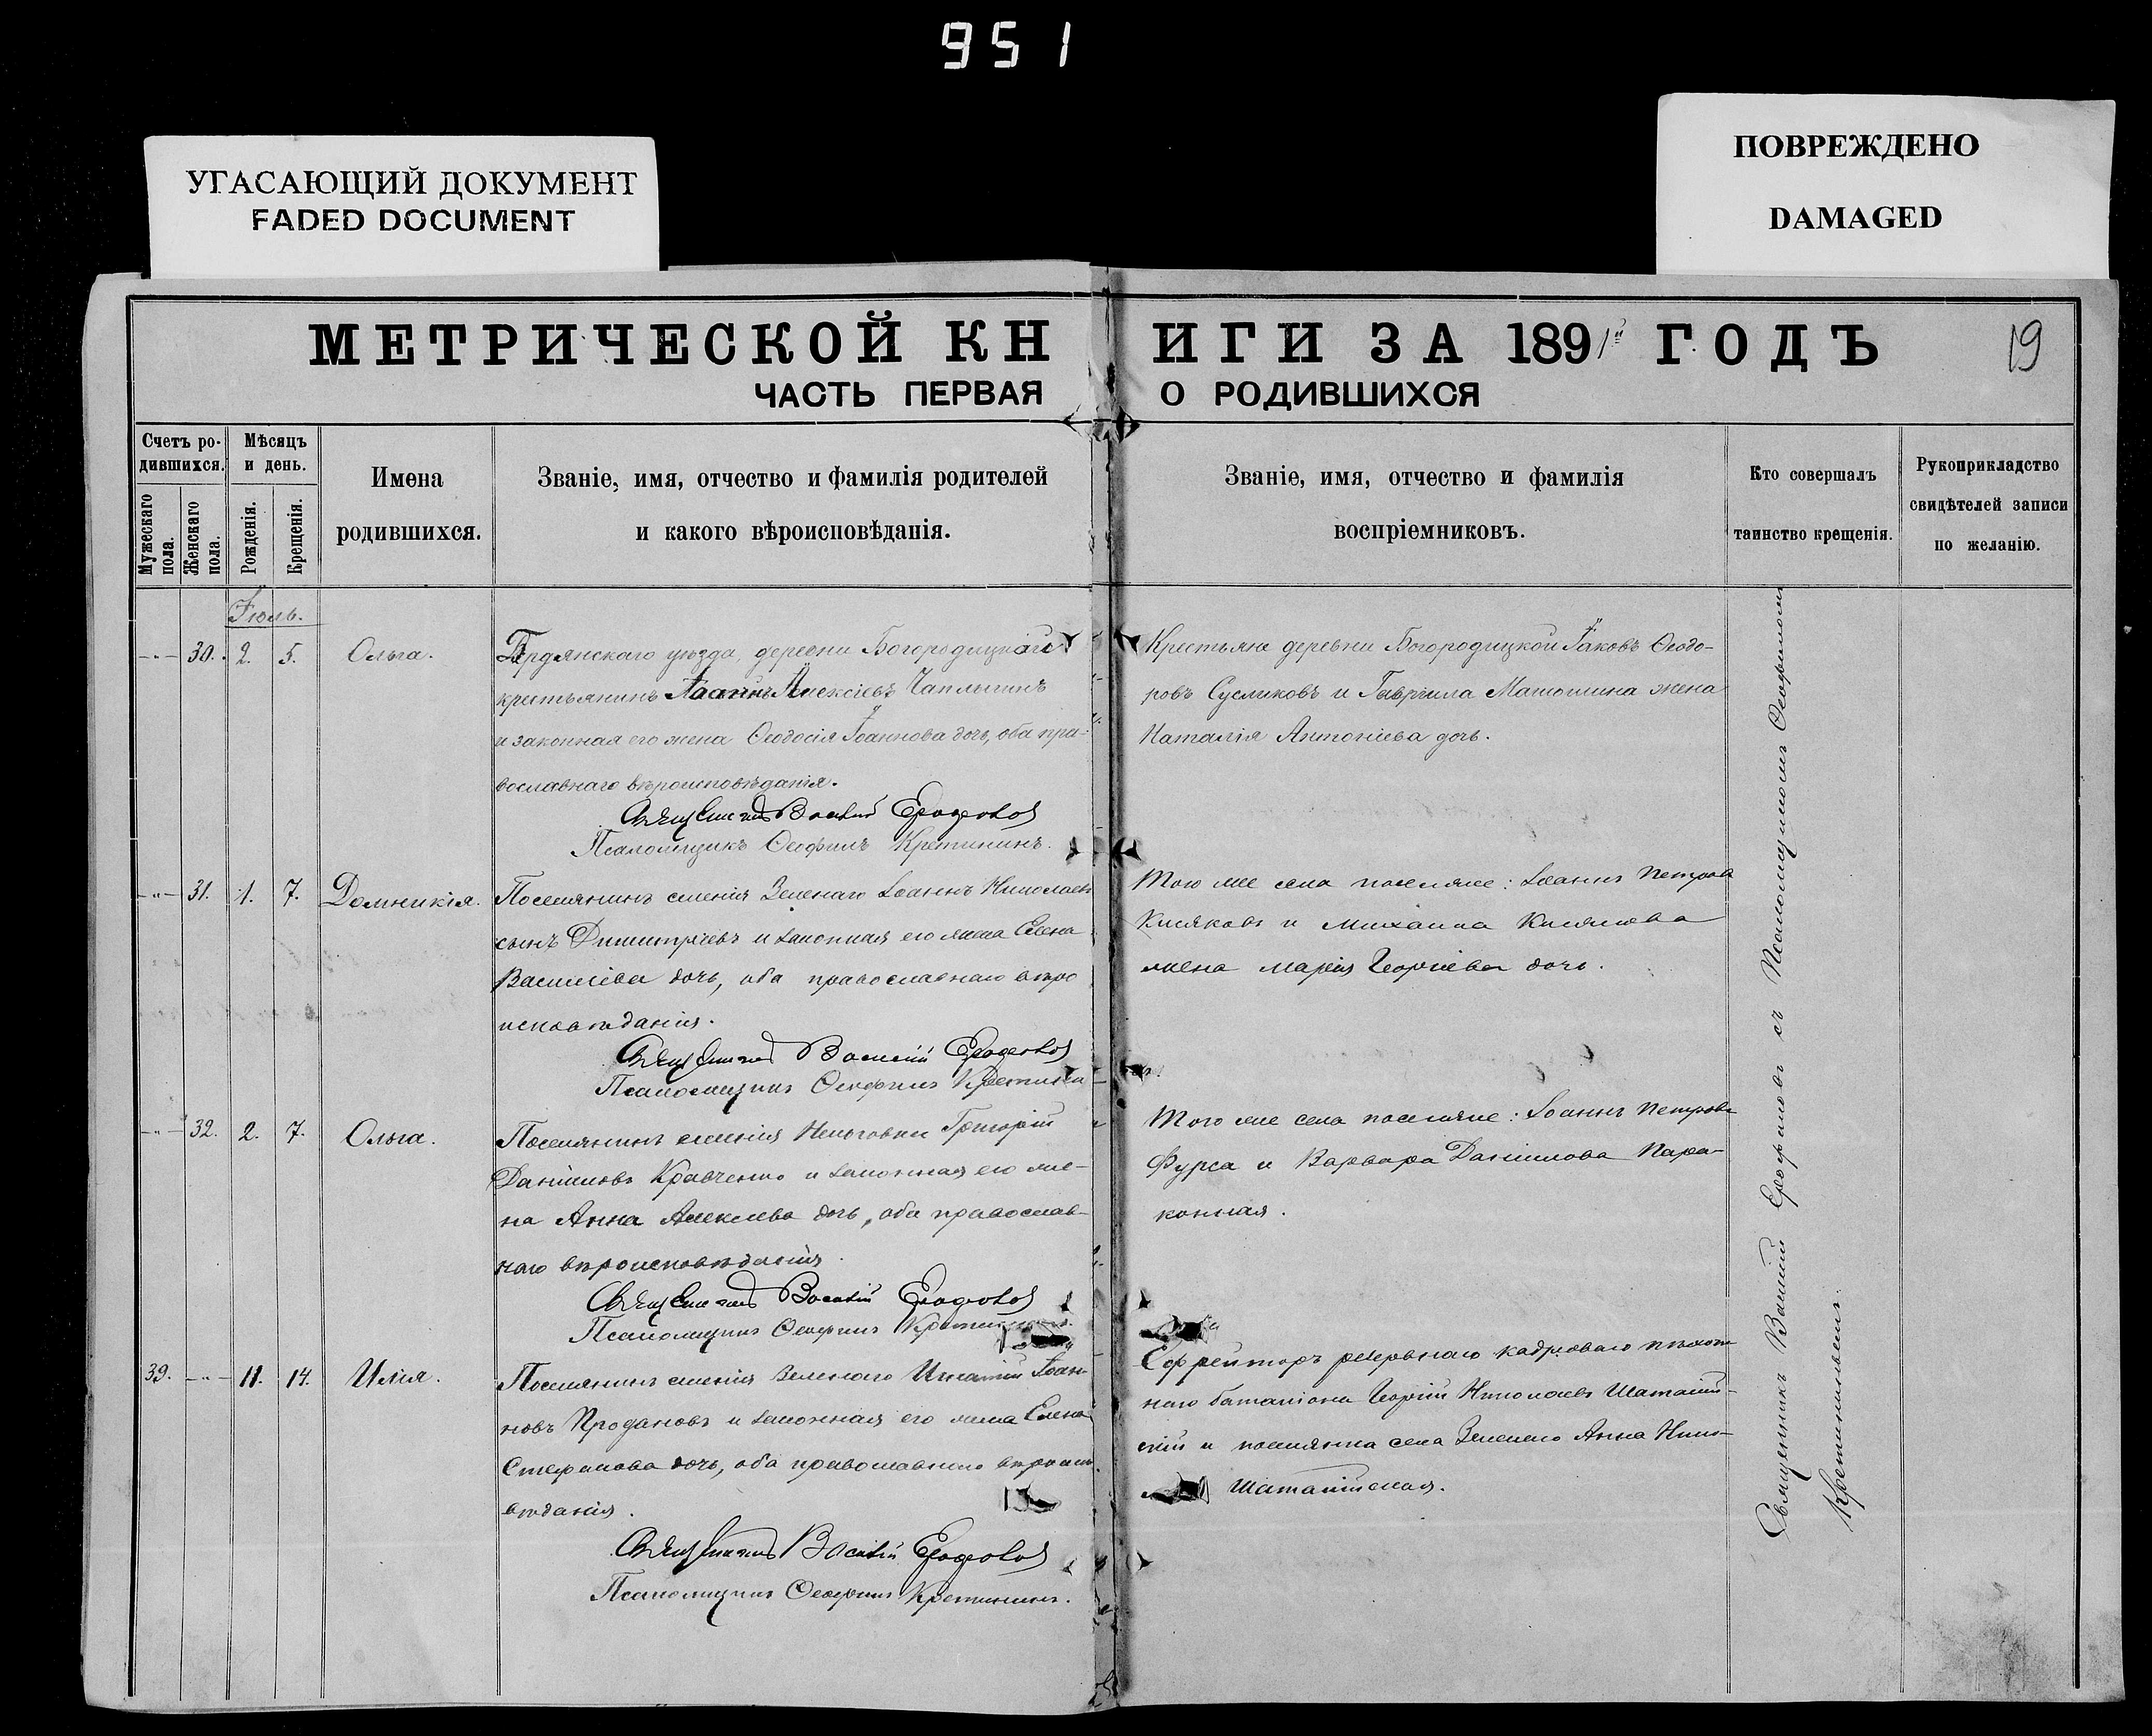 951
УГАСАЮЩИЙ ДОКУМЕНТ
FADED DOCUMENT
ПОВРЕЖДЕНО
DAMAGED
МЕТРИЧЕСКОЙ КНИГИ ЗА 1891й ГОДЪ
19
ЧАСТЬ ПЕРВАЯ О РОДИВШИХСЯ
Счетъ ро-
дившихся.
Мужескаго
пола.
Женскаго
пола.
Мѣсяцъ
и день.
Рожденія.
Крещенія.
Имена
родившихся.
Званіе, имя, отчество и фамилія родителей
и какого вѣроисповѣданія.
Званіе, имя, отчество и фамилія
воспріемниковъ.
Кто совершалъ
таинство крещенія.
Рукоприкладство
свидѣтелей записи
по желанію.
Іюль.
-"- 30. 2. 5. Ольга.
Бердянскаго уѣзда, деревни Богородицкой
крестьянинъ Алексіевъ Чаплыгинъ
и законная его жена Ѳеодосія Іоаннова дочь, оба пра-
вославнаго вѣроисповѣданія.
Священникъ Василій
Псаломщикъ Ѳеофилъ Кретининъ.
Крестьяне деревни Богородицкой Іаковъ Ѳеодо-
ровъ Сусликовъ и Гавріила Матюшина жена
Наталія Антоніева дочь.
-"- 31. 1. 7. Домникія.
Поселянинъ селенія Зеленаго Іоаннъ Николаевъ
сынъ Димитріевъ и законная его жена Елена
Василіева дочь, оба православнаго вѣро
исповѣданія.
Священникъ Василій
Псаломщикъ Ѳеофилъ Кретининъ
Того же села поселяне: Іоаннъ Петровъ
Кисяковъ и Михаила Кисякова
жена Марія Георгіева дочь.
-"- 32. 2. 7. Ольга.
Поселянинъ селенія Нельговки Григорій
Даніиловъ Кравченко и законная его же-
на Анна Алексіева дочь, оба православ-
наго вѣроисповѣданія.
Священникъ Василій
Псаломщикъ Ѳеофилъ Кретининъ.
Того же села поселяне: Іоаннъ Петровъ
Фурса и Варвара Даніилова Пара-
конная.
39. -"- 11. 14. Илія.
Поселянинъ селенія Зеленаго Игнатій Іоан-
новъ Продановъ и законная его жена Елена
Стефанова дочь, оба православнаго вѣроисп
вѣданія.
Священникъ Василій
Псаломщикъ Ѳеофилъ Кретининъ.
Ефрейторъ резервнаго кадроваго пѣхот
наго баталіона Георгій Николаевъ
и поселянка села Зеленаго Анна Нико-
Священникъ Василій съ Псаломщикомъ Ѳеофиломъ
Кретининымъ.